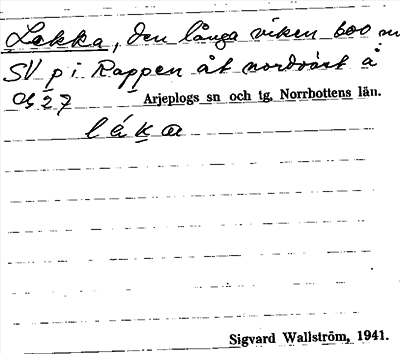 Lekka, den långa viken 600 m
SV p i Rappen åt nordväst å
Gb 27 Arjeplogs sn och tg, Norrbottens län.
lákа
Sigvard Wallström, 1941.